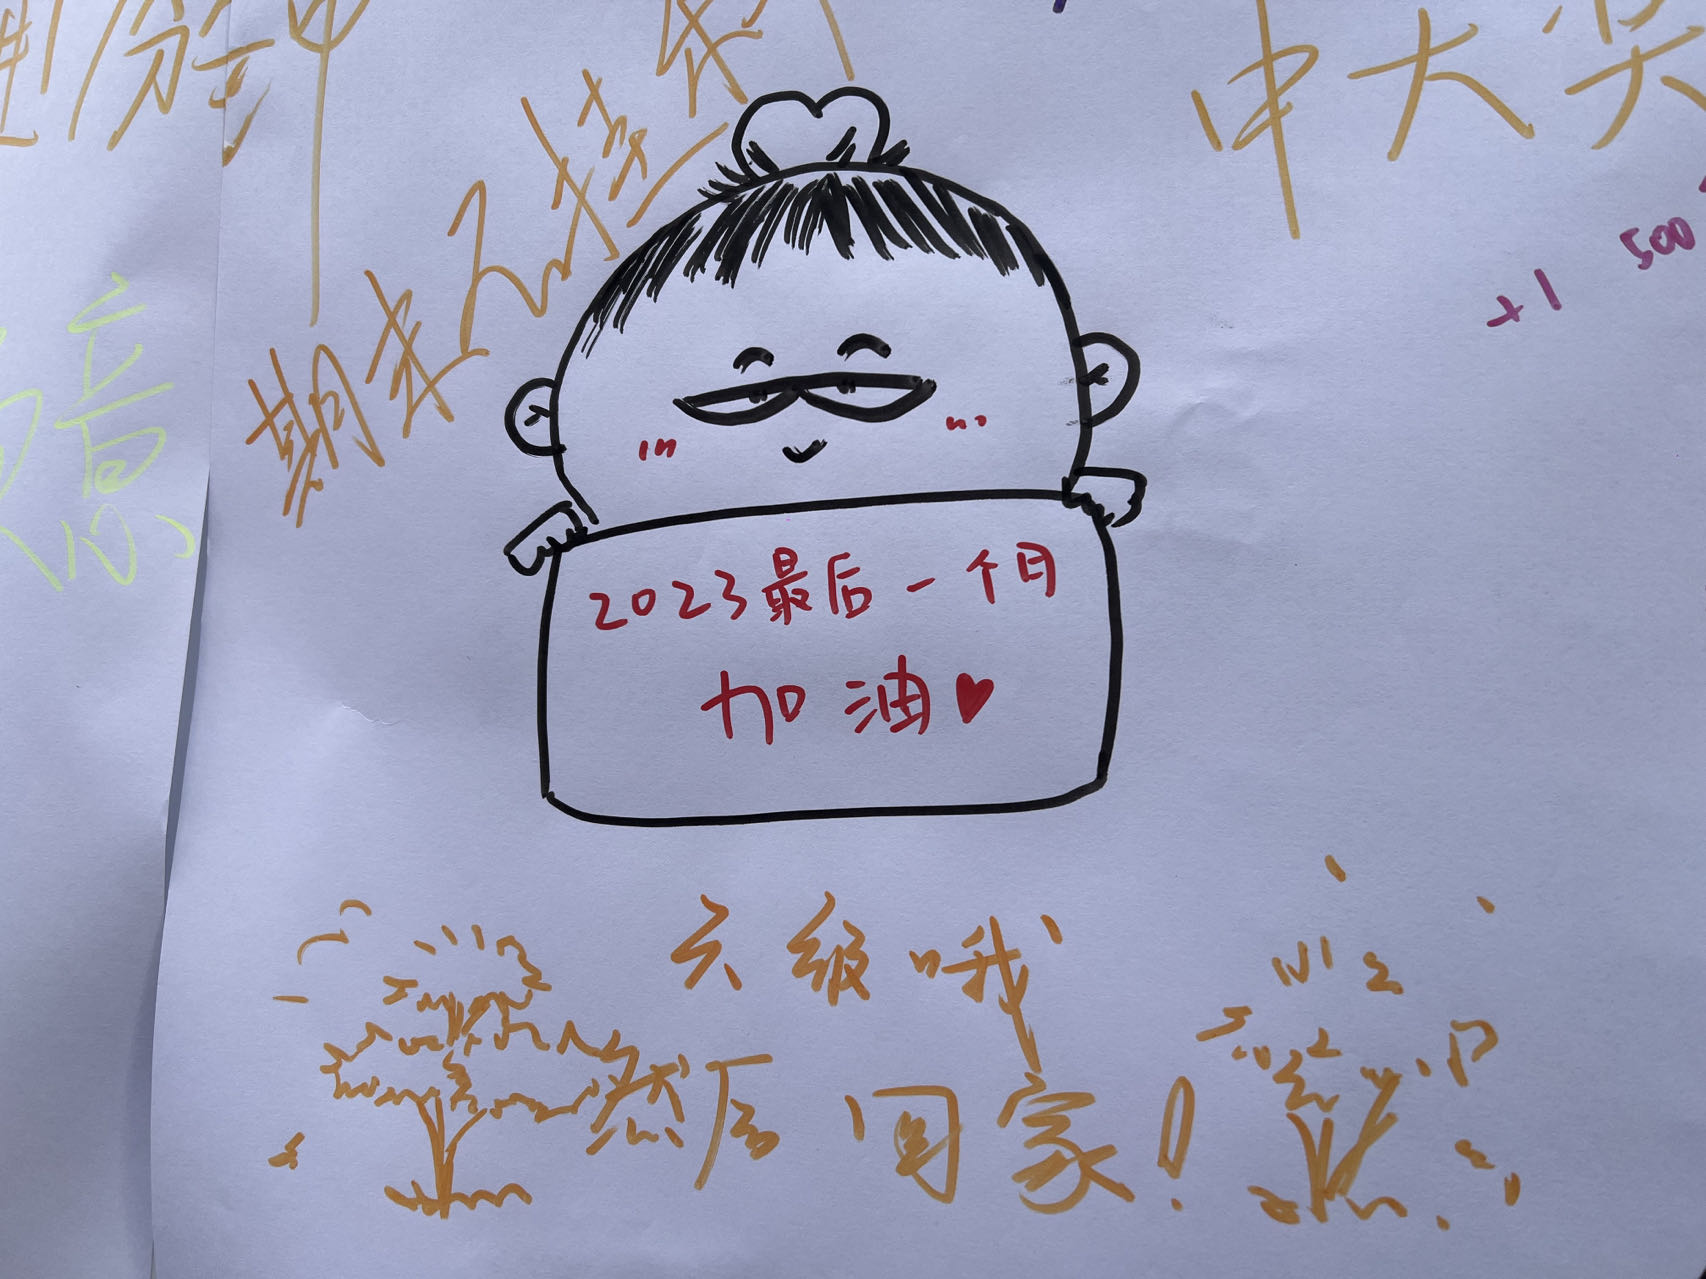 中大奖
500
+1
期末不挂科
2023最后一个月
加油
六级哦
然后回家!
意